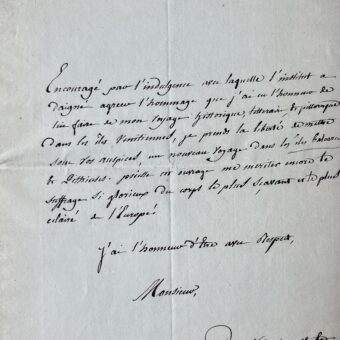 Encouragé par l'indulgence avec laquelle l'institut a
daigné agréer l'hommage que j'ai eu l'honneur de
lui faire de mon Voyage historique, litteraire, & pittoresque
dans les îles Venitiennes, je prends la liberté de mettre
sous vos auspices, un nouveau Voyage dans les îles Baleares
& Pithiuses. puisse cet ouvrage me meriter encore le
suffrage si glorieux du corps le plus sçavant et le plus
éclairé de l'Europe!
j'ai l'honneur d'Etre avec Respect,
Monsieur,